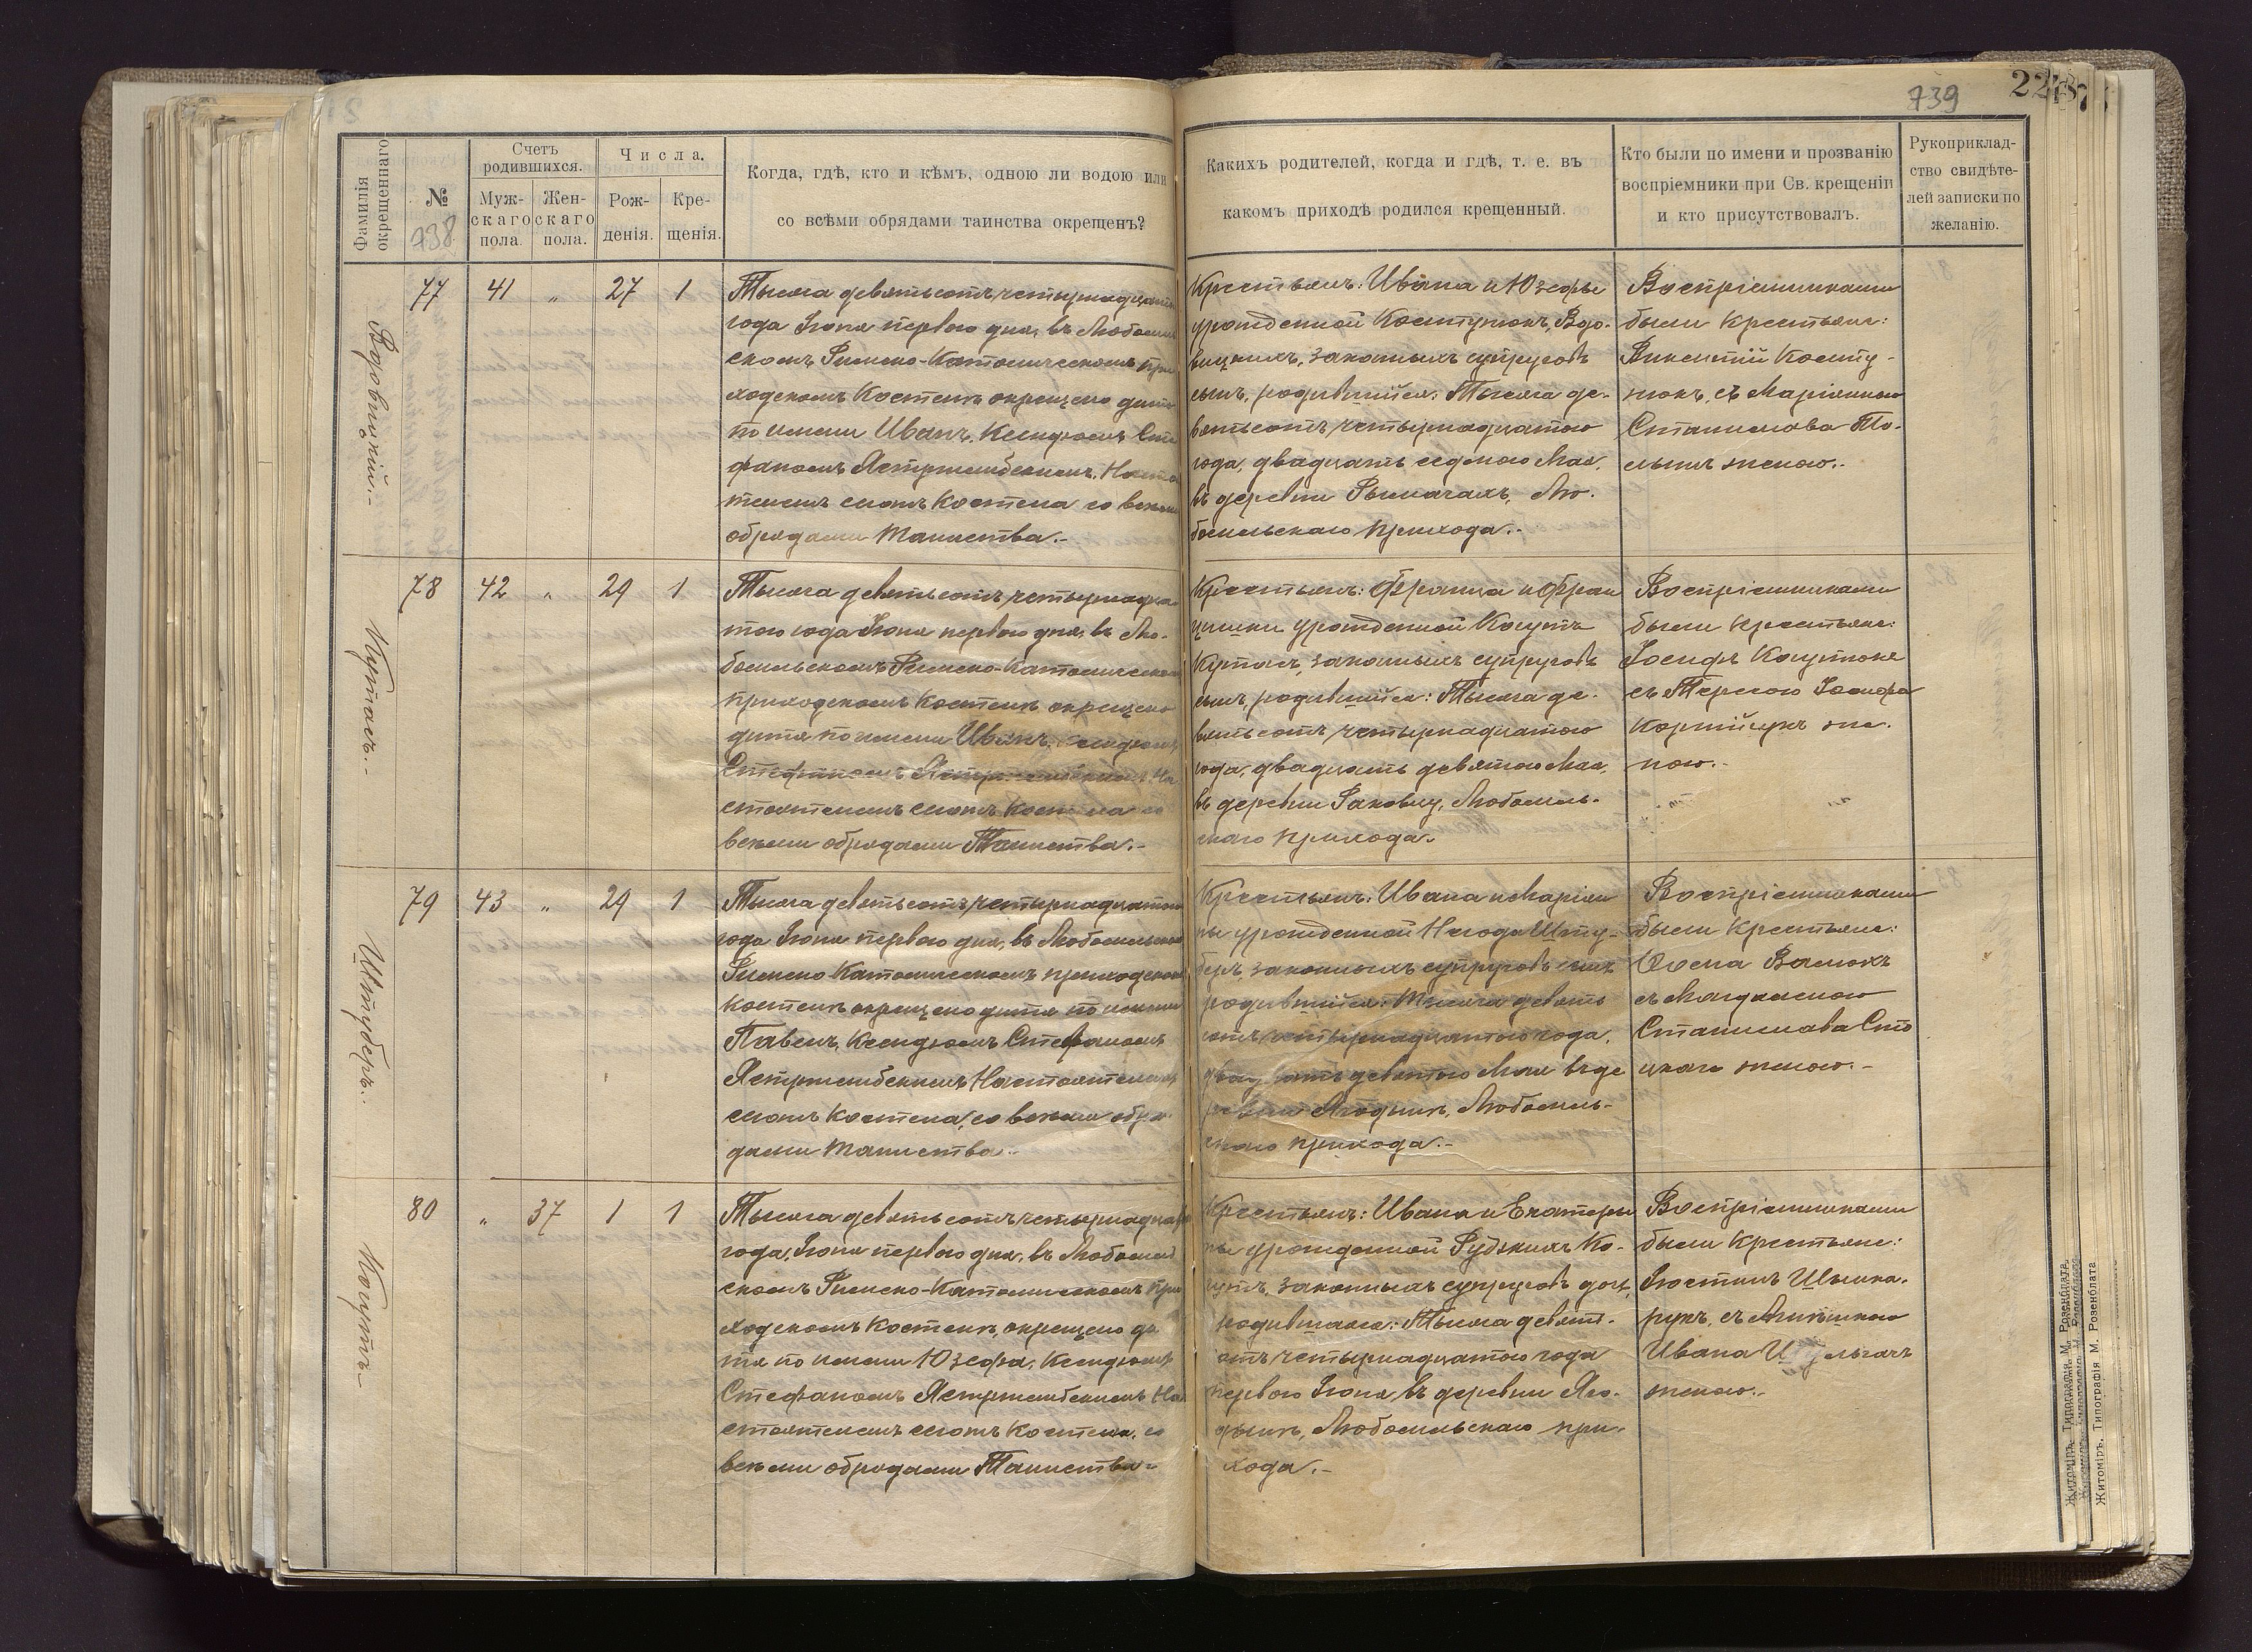 739
22
Фамилія
окрещеннаго
№
738
Счетъ
родившихся.
Муж-
скаго
пола.
Жен-
скаго
пола.
Числа.
Рож-
денія.
Кре-
щенія.
Когда, гдѣ, кто и кѣмъ, одною ли водою или
со всѣми обрядами таинства окрещенъ?
Какихъ родителей, когда и гдѣ, т. е. въ
какомъ приходѣ родился крещенный.
Кто были по имени и прозванію
воспріемники при Св. крещеніи
и кто присутствовалъ.
Рукоприклад-
ство свидѣте-
лей записки по
желанію.
77 41 „ 27 1
Тысяча девятьсотъ четырнадцат
года Іюня перваго дня, въ Любомль
скомъ Римско-Католическомъ при
ходскомъ Костелѣ окрещено дитя
по имени Иванъ, Ксендзомъ Сте
фаномъ Ястржембскимъ, Настоя
телемъ сногъ Костела со всѣми
обрядами Таинства.-
Крестьянъ: Ивана и Юзефы
урожденной Костунокъ, Вдо-
вицкихъ, законныхъ супруговъ
сынъ, родившійся: Тысяча де-
вятьсотъ четырнадцатого
года, двадцать седмого Мая,
въ деревни Рымачахъ, Лю-
бомльскаго прихода.-
Воспріемниками
были Крестьяне:
Викентій Косту-
нокъ, съ Маріянною
Станислава То-
женою.-
78 42 „ 29 1
Кутасъ.-
Тысяча девятьсотъ четырнадца
того года Іюня перваго дня, въ Лю-
бомльскомъ Римско-Католическом
приходскомъ Костелѣ окрещено
дитя по имени Иванъ, Ксендзомъ
Стефаномъ Ястржембскимъ, На
стоятелемъ сногъ Костела со
всѣми обрядами Таинства.-
Крестьянъ: Франца и Фран
цишки урожденной Когутъ
законныхъ супруговъ
сынъ, родившійся: Тысяча де-
вятьсотъ четырнадцатого
года, двадцать девятого Мая,
въ деревни Раковцу, Любомль-
скаго прихода.
Воспріемниками
были Крестьяне:
Іосифъ
съ Терезою Іосифа
же-
ною.-
79 43 „ 29 1
Штуберъ.-
Тысяча девятьсотъ четырнадцатого
года Іюня перваго дня, въ Любомльском
Римско Католическомъ приходском
Костелѣ окрещено дитя по имени
Павелъ, Ксендзомъ Стефаномъ
Ястржембскимъ Настоятелемъ
сногъ Костела, со всѣми обря
дами Таинства.-
Крестьянъ: Ивана и Маріан
ны урожденной Нагода Шту-
беръ, законныхъ супруговъ сынъ
родившійся: Тысяча девять
сотъ четырнадцатого года,
двадцать девятого Мая въ де
ревни Ягодинѣ, Любомль-
скаго прихода.-
Воспріемниками
были Крестьяне:
съ Магдаленою
Станислава Сто
женою.-
80 „ 37 1 1
Когутъ.-
Тысяча девятьсотъ четырнадцато
года, Іюня перваго дня, въ Любомль
скомъ Римско-Католическомъ при
ходскомъ Костелѣ, окрещено ди
тя по имени Юзефа, Ксендзомъ
Стефаномъ Ястржембскимъ На
стоятелемъ сногъ Костела, со
всѣми обрядами Таинства
Крестьянъ: Ивана и Екатери
ны урожденной Рудскихъ Ко-
гутъ, законныхъ супруговъ дочь,
родившаяся: Тысяча девять-
сотъ четырнадцатого года
перваго Іюня въ деревни Яго-
динѣ, Любомльскаго при-
хода.-
Воспріемниками
были Крестьяне:
Іюстинъ
съ
Ивана
женою.-
Житоміръ. Типографія М. Розенблата